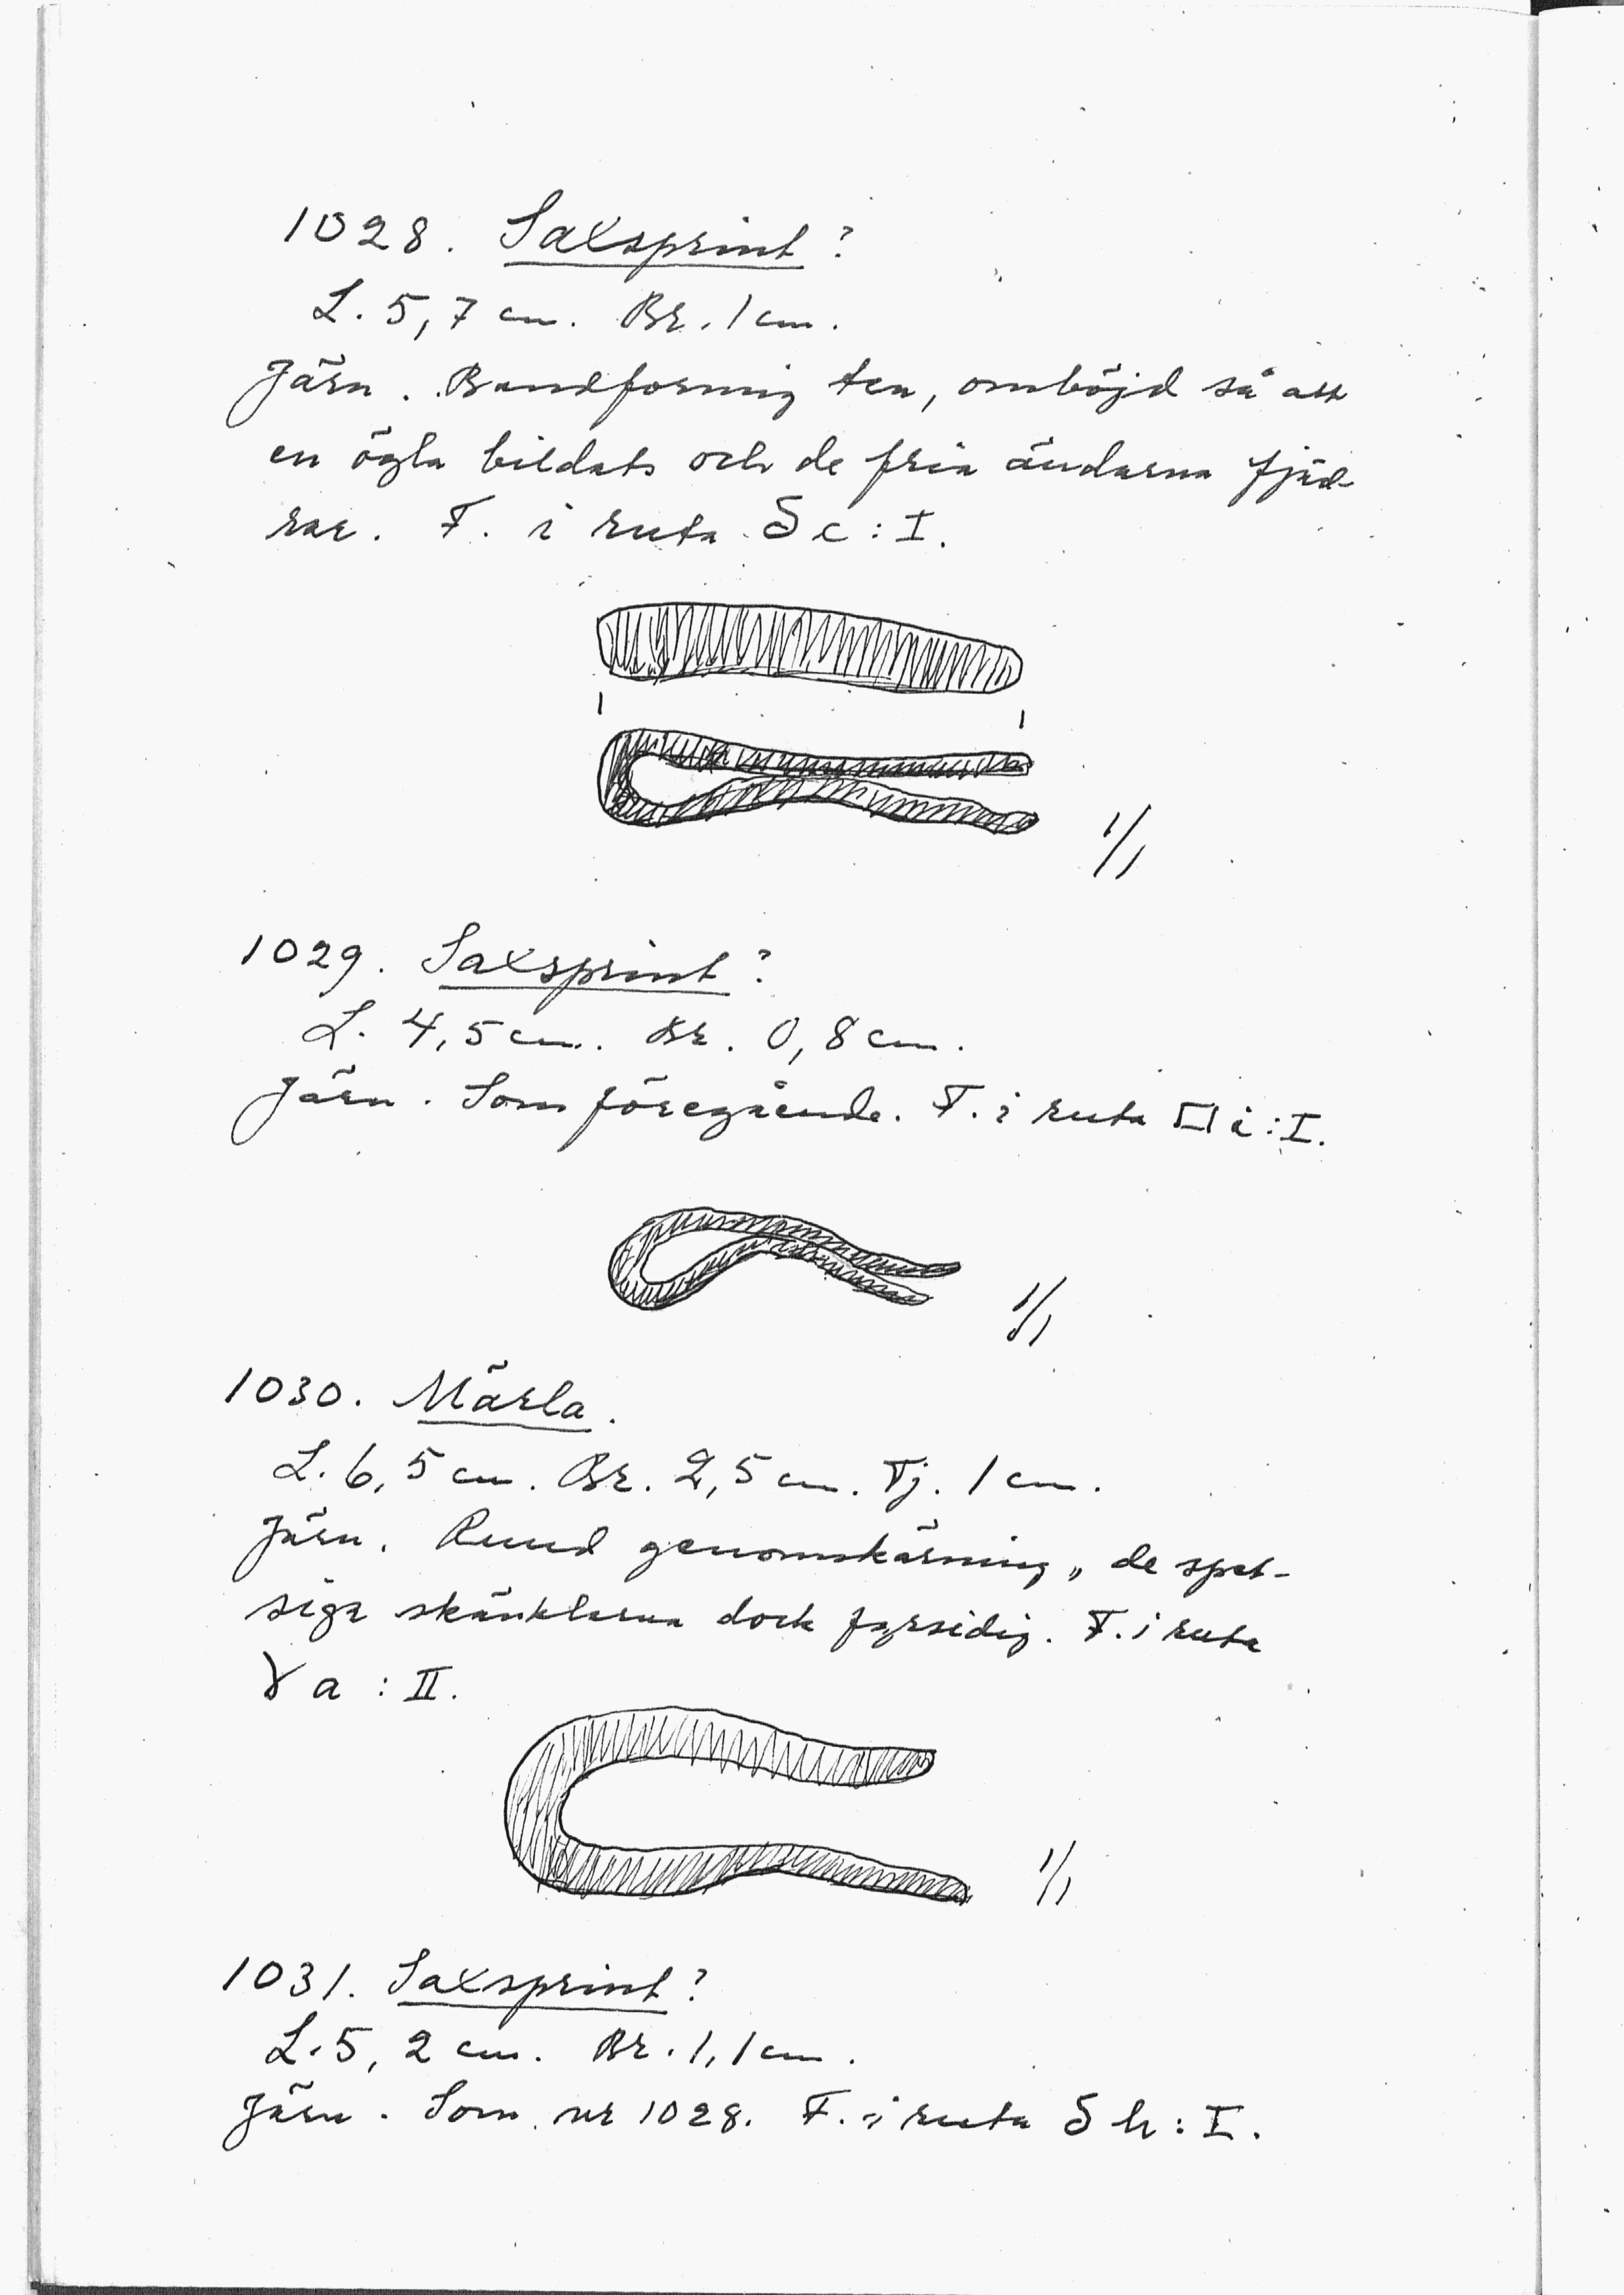 1028. Saxsprint?
L. 5,7 cm. Br. 1 cm.
Järn. Bandformig ten, omböjd så att
en ögla bildats och de fria ändarna fjäd-
rar. F. i ruta δ c : I.
1/1
1029. Saxsprint?
L. 4,5 cm. Br. 0,8 cm.
Järn. Som föregående. F. i ruta : I.
1/1
1030. Märla.
L. 6,5 cm. Br. 2,5 cm. Tj. 1 cm.
Järn. Rund genomskärning, de spet-
siga skänklarna dock fyrsidig. F. i ruta
γ a : II.
1/1
1031. Saxsprint?
L. 5,2 cm. Br. 1,1 cm.
Järn. Som nr 1028. F. i ruta δ h : I.